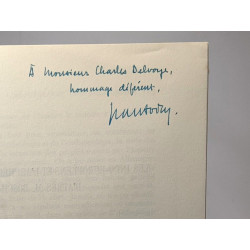 À Monsieur Charles Delvoye,
hommage déférent,